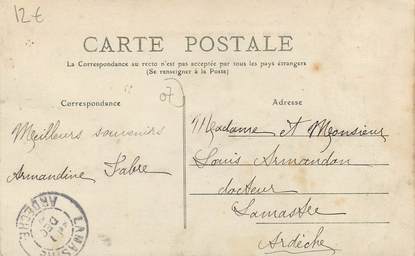 12€
CARTE POSTALE
La Correspondance au recto n'est pas acceptée par tous les pays étrangers
(Se renseigner à la Poste)
Correspondance
Adresse
07
Meilleurs souvenirs
Armandine Fabre
Madame et Monsieur
Louis Armandon
docteur
Lamastre
Ardèche
LAMASTRE
DEC
ARDECHE